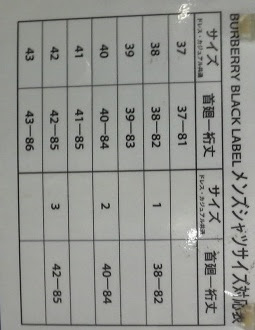 BURBERRY BLACK LABEL メンズシャツサイズ対応表
サイズ ドレス・カジュアル共通 首廻—裄丈 サイズ ドレス・カジュアル共通 首廻—裄丈
37 37—81
38 38—82 1 38—82
39 39—83
40 40—84 2 40—84
41 41—85
42 42—85 3 42—85
43 43—86